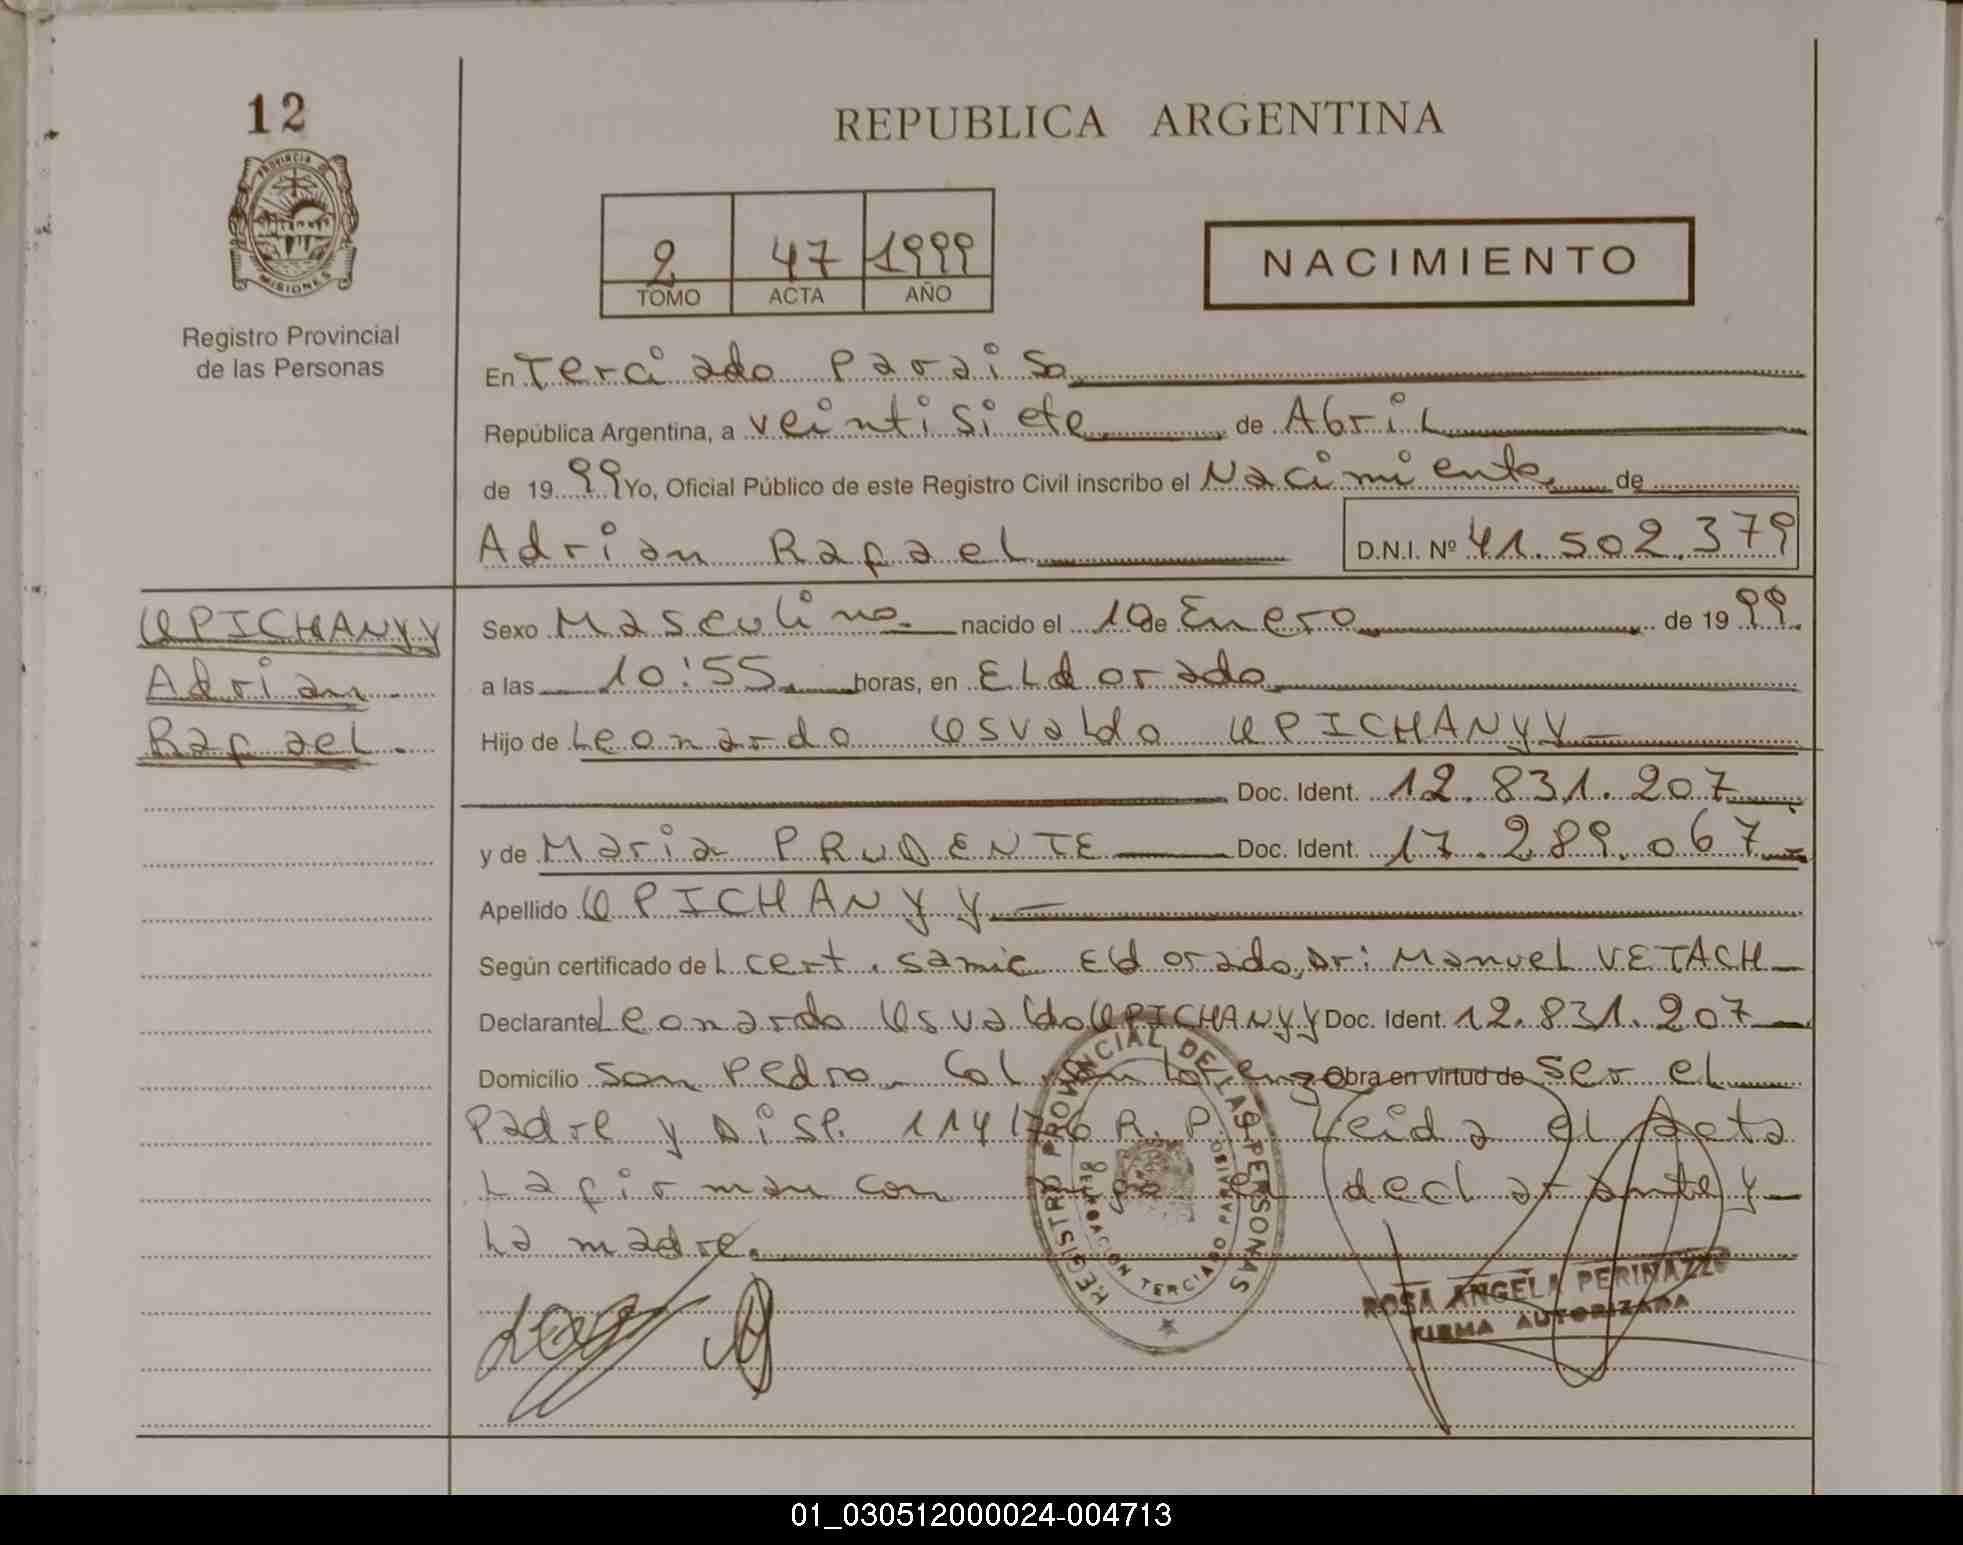 12
REPUBLICA ARGENTINA
PROVINCIA
MISIONES
Registro Provincial
de las Personas
2 47 1999
TOMO ACTA AÑO
NACIMIENTO
En Terciado Paraiso
República Argentina, a veintisiete de Abril
de 1999 Yo, Oficial Público de este Registro Civil inscribo el Nacimiento de
Adrian Rafael D.N.I. Nº 41.502.379
OPICHANYY
Adrian
Rafael.
Sexo Masculino. nacido el 10 de Enero de 1999.
a las 10:55 horas, en Eldorado
Hijo de Leonardo Osvaldo OPICHANYY
Doc. Ident. 12.831.207
y de Maria PRUDENTE Doc. Ident. 17.289.067
Apellido OPICHANYY
Según certificado del cert. samic Eldorado, Dr: Manuel VETACH
Declarante Leonardo Osvaldo OPICHANYY Doc. Ident. 12.831.207
Domicilio San Pedro Col. Obra en virtud de ser el
Padre y Disp. 114/76 R.P.P. Leida el Acta
La firman con el declarante y
La madre.
REGISTRO PROVINCIAL DE LAS PERSONAS
DELEGACION TERCIADO PARAISO
ROSA ANGELA PERINAZZO
FIRMA AUTORIZADA
01_030512000024-004713